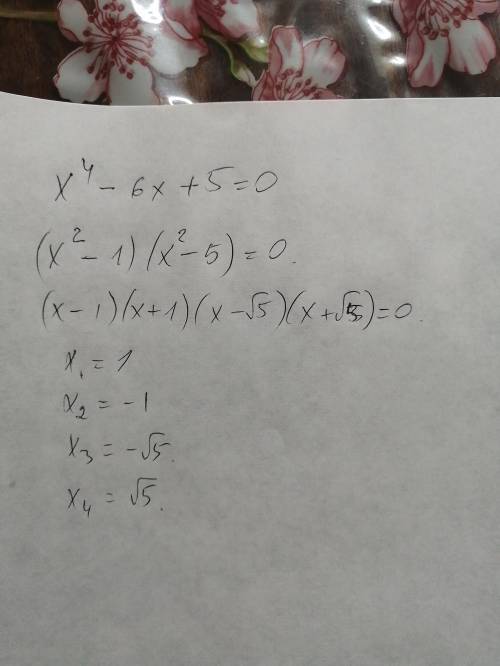 x⁴ - 6x + 5 = 0
(x² - 1)(x² - 5) = 0.
(x - 1)(x + 1)(x - √5)(x + √5) = 0.
x₁ = 1
x₂ = -1
x₃ = -√5.
x₄ = √5.